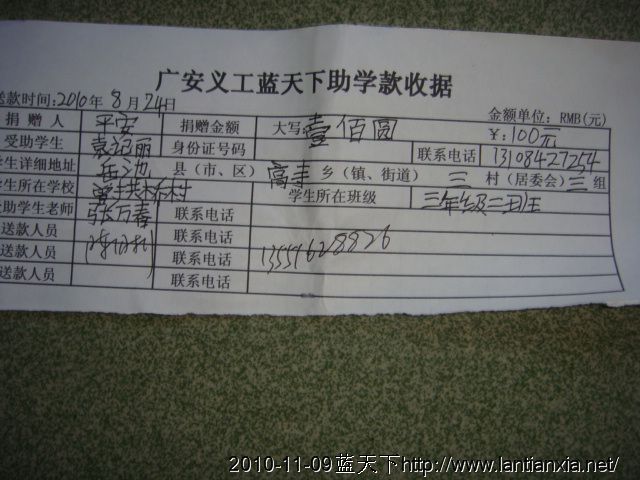 广安义工蓝天下助学款收据
送款时间:2010年8月24日 金额单位: RMB(元)
捐赠人 平安 捐赠金额 大写 壹佰圆 ¥:100元
受助学生 袁记丽 身份证号码 联系电话 13108427254
学生详细地址 岳池 县(市、区) 高丰 乡(镇、街道) 三 村(居委会) 三 组
学生所在学校 学生所在班级 三年级二班
助学生老师 张万春 联系电话
送款人员 联系电话 13551628826
送款人员 联系电话
2010-11-09蓝天下http://www.lantianxia.net/